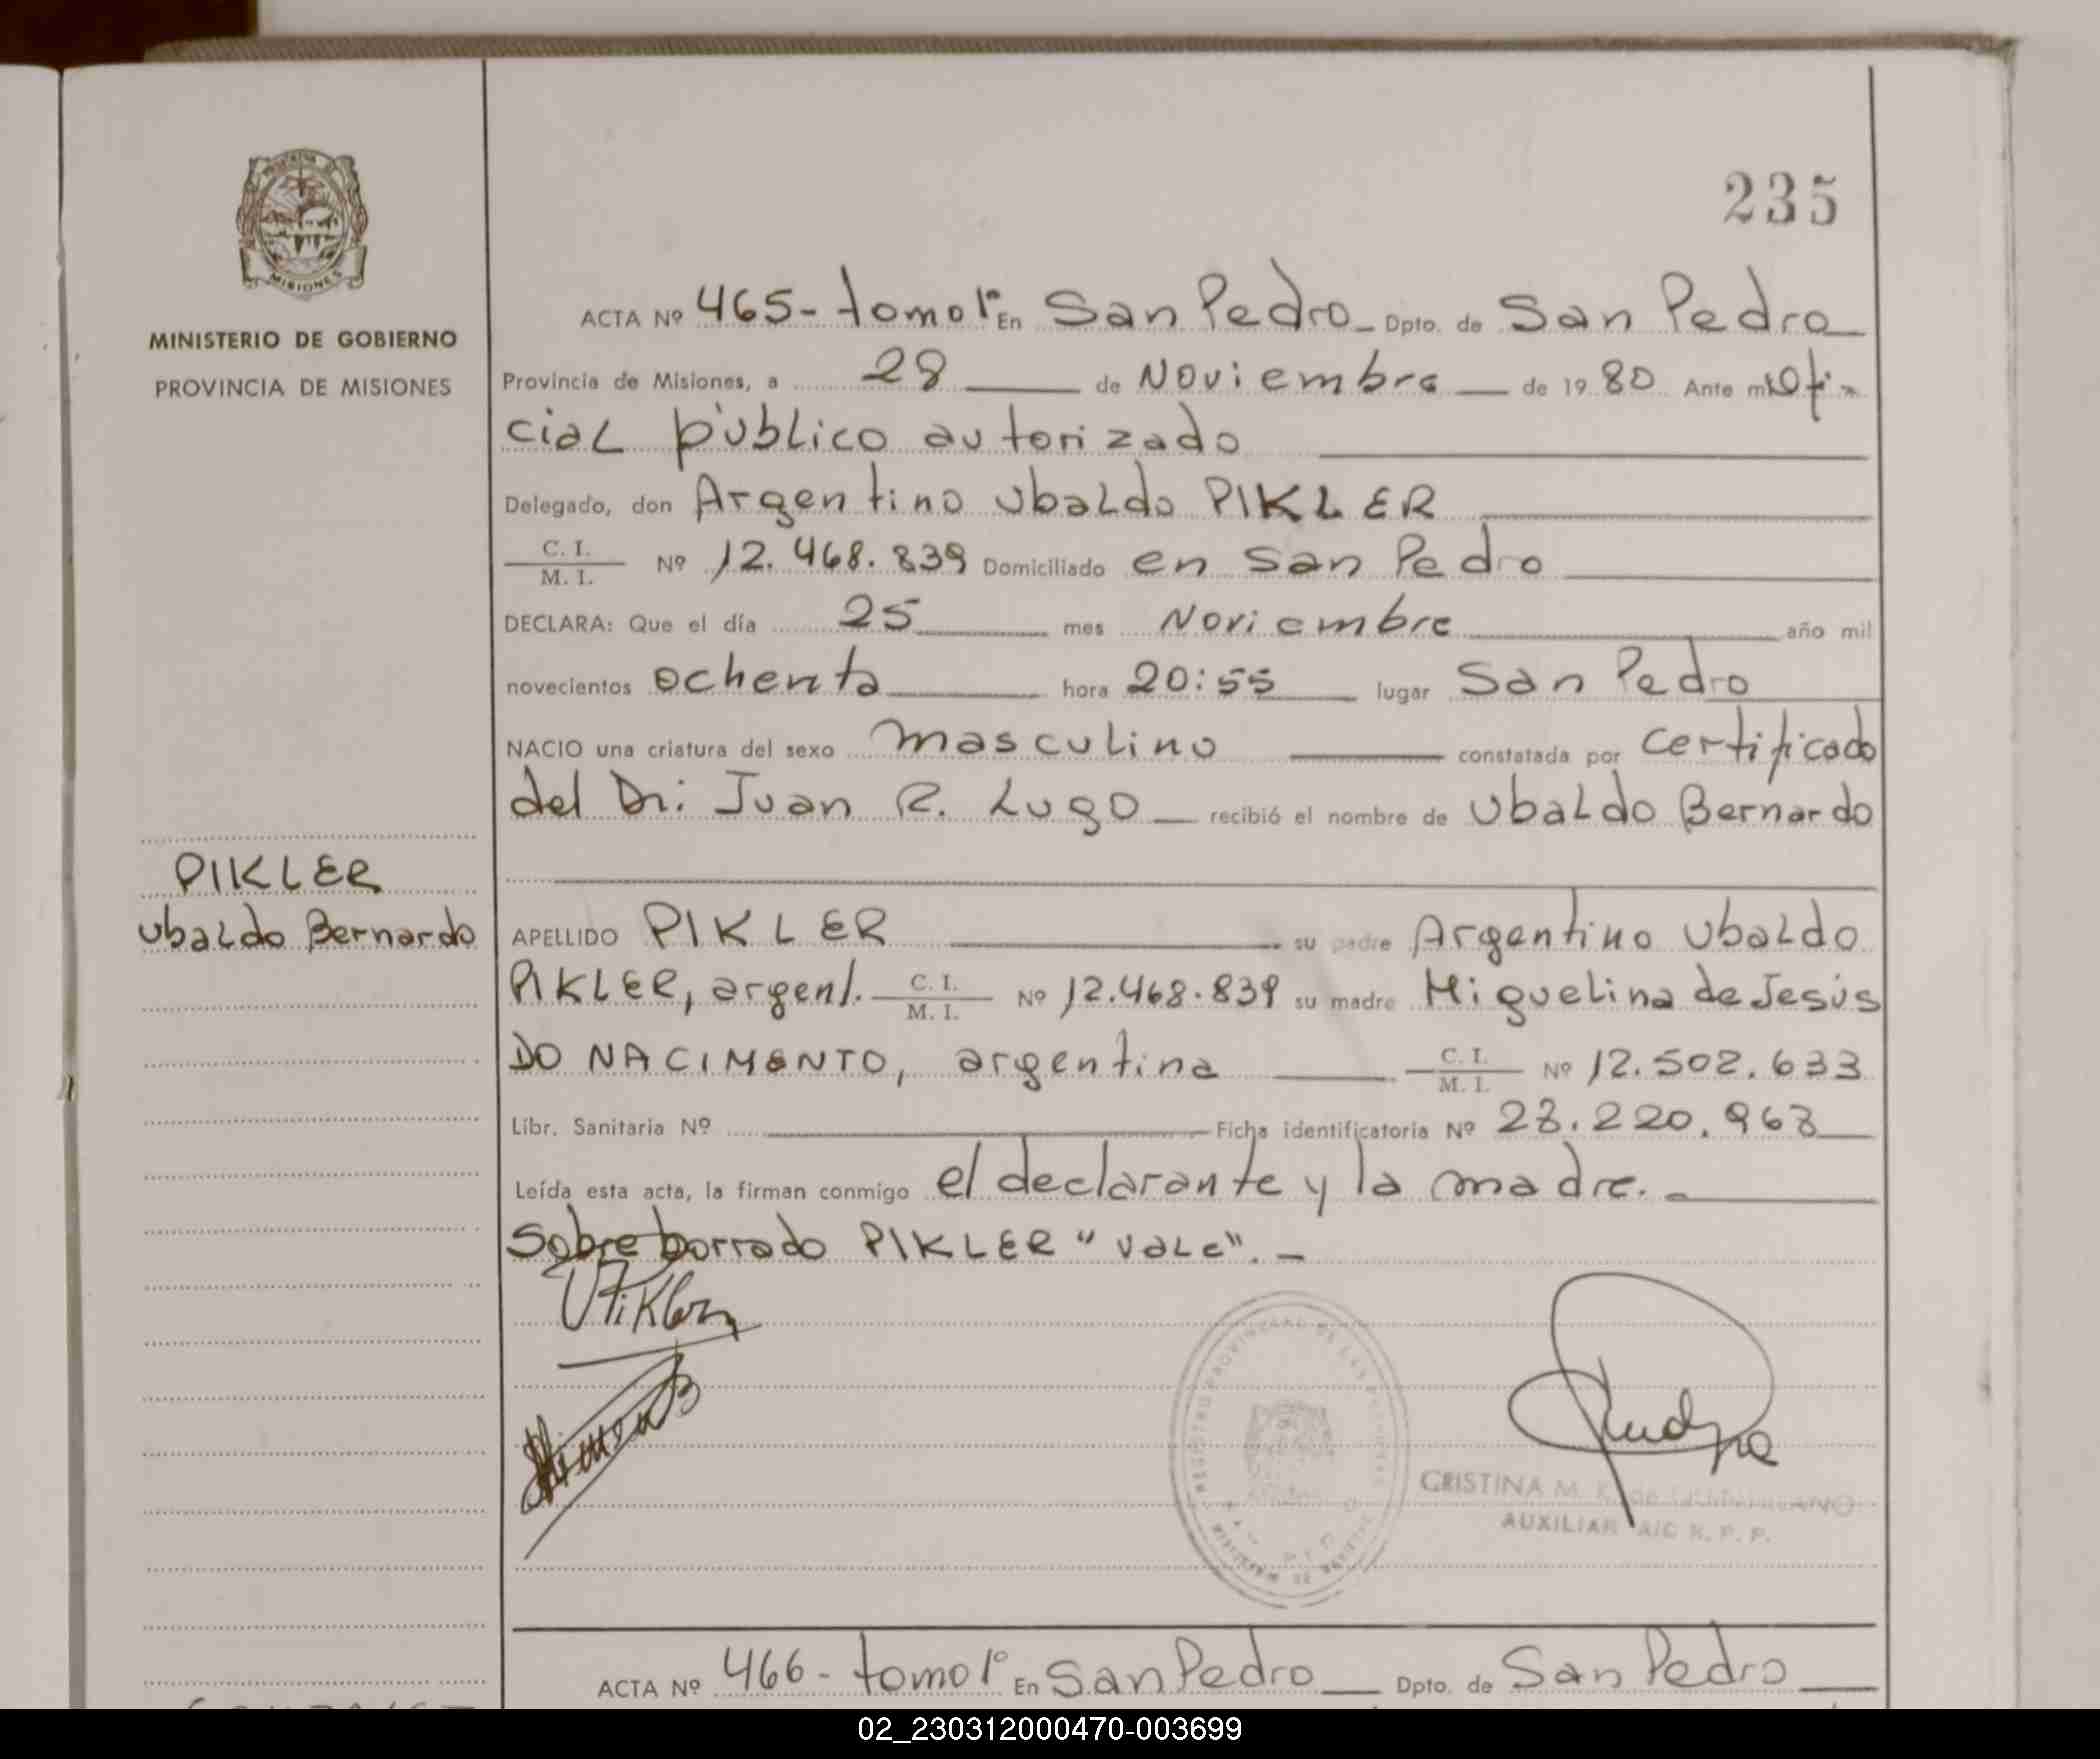 235
MINISTERIO DE GOBIERNO
PROVINCIA DE MISIONES
ACTA Nº 465- tomo 1º En San Pedro Dpto. de San Pedro
Provincia de Misiones, a 28 de Noviembre de 19 80 Ante mi Ofi-
cial público autorizado
Delegado, don Argentino Ubaldo PIKLER
C. I. / M. I. Nº 12.468.839 Domiciliado en San Pedro
DECLARA: Que el día 25 mes Noviembre año mil
novecientos ochenta hora 20:55 lugar San Pedro
NACIO una criatura del sexo masculino constatada por certificado
del Dr: Juan R. Lugo recibió el nombre de Ubaldo Bernardo
PIKLER
Ubaldo Bernardo
APELLIDO PIKLER su padre Argentino Ubaldo
PIKLER, argent. C. I. / M. I. Nº 12.468.839 su madre Miguelina de Jesús
DO NACIMENTO, argentina C. I. / M. I. Nº 12.502.633
Libr. Sanitaria Nº Ficha identificatoria Nº 28.220.968
Leída esta acta, la firman conmigo el declarante y la madre.-
Sobre borrado PIKLER "vale".-
UPikler
CRISTINA M.
AUXILIAR A/C R. P. P.
ACTA Nº 466- tomo 1º En San Pedro Dpto. de San Pedro
02_230312000470-003699